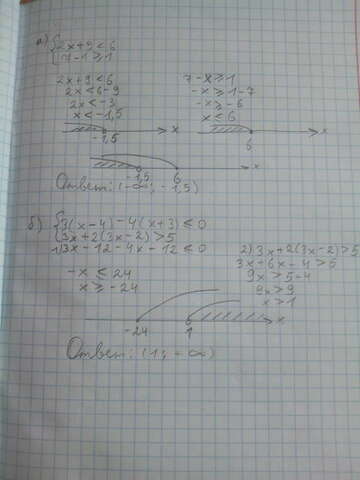 а) {2x+9<6
{7-1≥1
2x+9<6
2x<6-9
2x<-3
x<-1,5
7-x≥1
-x≥1-7
-x≥-6
x≤6
x
-1,5
x
6
-1,5 6 x
Ответ: (-∞; -1,5)
б) {3(x-4)-4(x+3)≤0
{3x+2(3x-2)>5
1)3x-12-4x-12≤0
-x≤24
x≥-24
2)3x+2(3x-2)>5
3x+6x-4>5
9x>5+4
9x>9
x>1
-24 1 x
Ответ: (1; -∞)